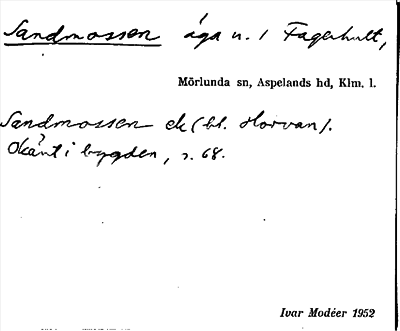 Sandmossen äga n. 1 Fagerhult,
Mörlunda sn, Aspelands hd, Klm. l.
Sandmossen ek (bl. Horvan).
Okänt i bygden, s. 68.
Ivar Modéer 1952